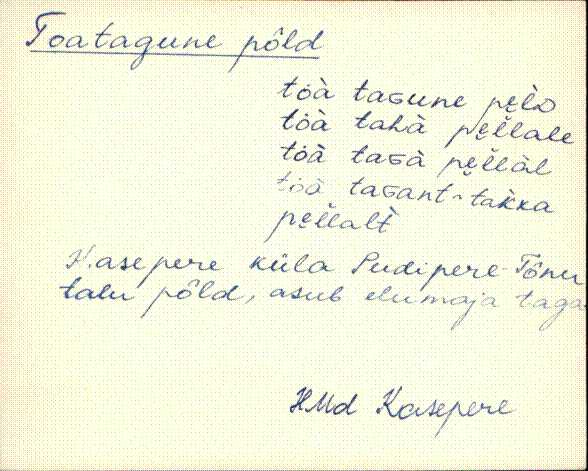 Toatagune põld
tòà taɢune pèlᴅ
tòà tahà pèl̆lale
tòà taɢà pèl̆làl
tòà taɢant-takka
pèl̆lalt
Kasepere küla Pudipere-Tõnu
talu põld, asub elumaja taga
HMd Kasepere